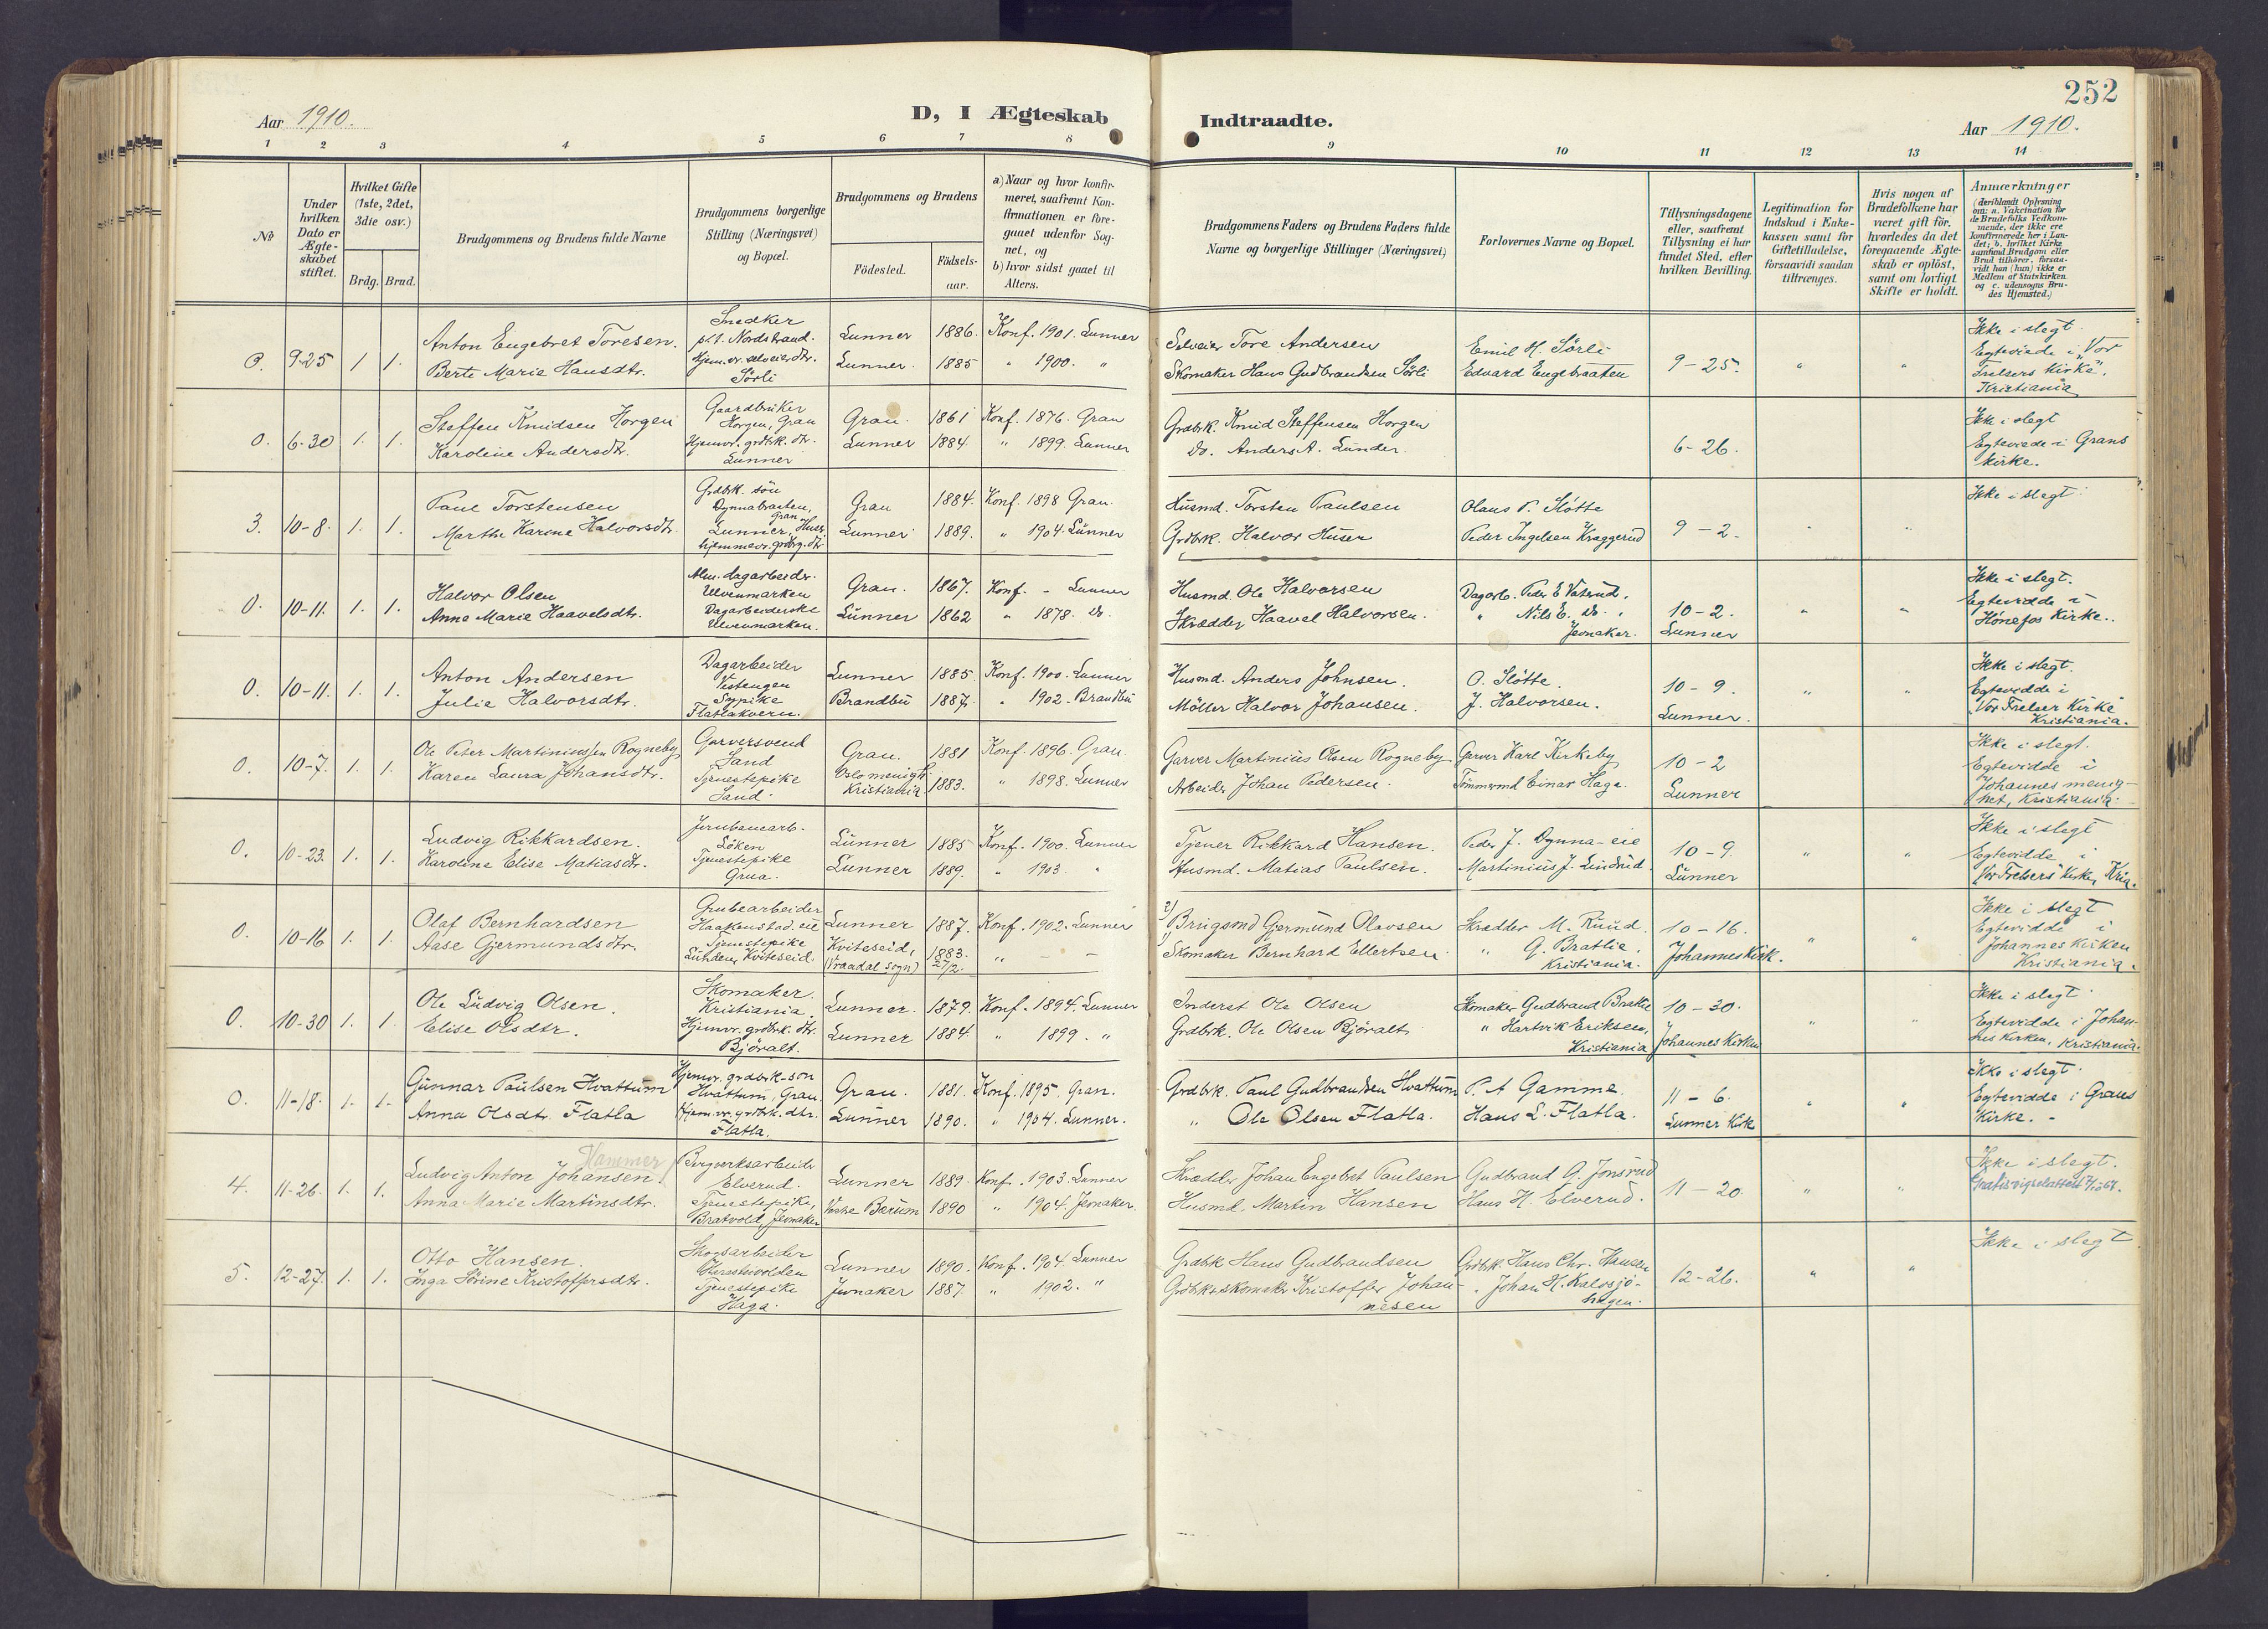 252
Aar 1910.
D, I Ægteskab
Indtraadte.
Aar 1910.
1 2 3 4 5 6 7 8
9 10 11 12 13 14
No
Under hvilken Dato er Ægte-skabet stiftet.
Hvilket Gifte (1ste, 2det, 3die osv.)
Brdg. Brud.
Brudgommens og Brudens fulde Navne
Brudgommens borgerlige Stilling (Næringsvei) og Bopæl.
Brudgommens og Brudens
Födested.
Födsels-aar.
a) Naar og hvor konfir-meret, saafremt Kon-firmationen er fore-gaaet udenfor Sog-net, og
b) hvor sidst gaaet til Alters.
Brudgommens Faders og Brudens Faders fulde Navne og borgerlige Stillinger (Næringsvei)
Forlovernes Navne og Bopæl.
Tillysningsdagene eller, saafremt Tillysning ei har fundet Sted, efter hvilken Bevilling.
Legitimation for Indskud i Enke-kassen samt for Giftetilladelse, forsaavidt saadan tiltrænges.
Hvis nogen af Brudefolkene har været gift før, hvorledes da det foregaaende Ægte-skab er oplöst, samt om lovligt Skifte er holdt.
Anmærkninger
(deriblandt Oplysning om: a. Vakcination for de Brudefolks Vedkom-mende, der ikke ere konfirmerede her i Lan-det; b. hvilket Kirke-samfund Brudgom eller Brud tilhörer, forsaa-vidt han (hun) ikke er Medlem af Statskirken og c. udensogns Bru-des Hjemsted.)
0. 9-25 1 1.
Anton Engebret Toresen.
Berte Marie Hansdtr.
Snedker
p.t. Nordstrand.
Hjem.v. selveierdtr.
Sörli
Lunner 1886. Konf. 1901. Lunner
Lunner. 1885 " 1900. "
Selveier Tore Andersen
Skomaker Hans Gudbrandsen Sörli
Emil H. Sörli
Edvard Engebraaten
9-25. " "
Ikke i slegt.
Egteviede i "Vor
Frelsers Kirke",
Kristiania
0. 6-30 1. 1.
Steffen Knudsen Horgen
Karoline Andersdtr.
Gaardbruker
Horgen, Gran
Hjemv. grdbrk. dtr.
Lunner
Gran. 1861 Konf. 1876. Gran
Lunner 1884 " 1899. Lunner
Grdbrk. Knud Steffensen Horgen
Do. Anders A. Lunder.
6-26.
Ikke i slegt
Egteviede i Grans
kirke.
3. 10-8. 1. 1.
Paul Torstensen
Marthe Karine Halvorsdtr.
Grdbrk. sön
Dynnabraaten,
Gran
Lunner, Huser
hjemmev. grdbrg. dtr.
Gran 1884. Konf. 1898 Gran.
Lunner 1889. " 1904. Lunner
Husmd. Torsten Paulsen
Grdbrk. Halvor Huser
Olaus P. Slötte
Peder Ingelsen Kraggerud
9-2. " "
Ikke i slegt.
0. 10-11. 1. 1.
Halvor Olsen
Anne Marie Haavelsdtr.
Alm. dagarbeidr.
Ulvenmarken
Dagarbeiderske
Ulvenmarken.
Gran. 1867. Konf. - Lunner
Lunner 1862 " 1878. do.
Husmd. Ole Halvorsen
Skrædder Haavel Halvorsen.
Dagarb. Peder E Vaterud.
" Nils E. do. "
Jevnaker.
10-2. " "
Lunner
Ikke i slegt.
Egtevidde i
Hönefos Kirke.
0. 10-11. 1. 1.
Anton Andersen
Julie Halvorsdtr.
Dagarbeider
Vestengen
Sypike
Flatlakvern.
Lunner 1885. Konf. 1900. Lunner
Brandbu 1887. " 1902. Brandbu
Husmd. Anders Johnsen.
Möller Halvor Johansen.
O. Slötte.
J. Halvorsen.
10-9. " "
Lunner.
Ikke i slegt.
Egtevidde i
"Vor Frelser Kirke"
Kristiania.
0. 10-7. 1. 1.
Ole Peter Martiniussen Rogneby
Karen Laura Johansdtr.
Garversvend
Sand
Tjenestepike
Sand.
Gran. 1881 Konf. 1896. Gran
Oslo menigh.
Kristiania 1883. " 1898. Lunner
Garver Martinius Olsen Rogneby
Arbeider Johan Pedersen.
Garver Karl Kirkeby
Tömmermd Einar Haga.
10-2
Lunner
Ikke i slegt.
Egtevidde i
Johannes menig-
het, Kristiania.
0. 10-23. 1. 1.
Ludvig Rikkardsen.
Karoline Elise Matiasdtr.
Jernbanearb.
Söken
Tjenestepike
Grua.
Lunner 1885 Konf. 1900. Lunner
Lunner 1889. " 1903. "
Tjener Rikkard Hansen.
Husmd. Matias Paulsen.
Peder J. Dynna-eie
Martinius J. Lindrud.
10-9. " "
Lunner
Ikke i slegt
Egtevidde i
"Vor Frelsers" Kirke, Kria.
0. 10-16 1. 1.
Olaf Bernhardsen
Aase Gjermundsdtr.
Grubearbeider
Haakenstad. eie
Tjenestepike
Kviteseid.
Lunner 1887. Konf. 1902. Lunner
Kviteseid, 1883. " - -
(Vraadal sogn) 27/2.
2) Brugsmd Gjermund Olavsen
1) Skomaker Bernhard Ellertsen
Skrædder M. Ruud.
" G. Bratlie.
Kristiania.
10-16. " "
Johannes Kirk.
Ikke i slegt
Egtevidde i
Johannes Kirken
Kristiania.
0. 10-30 1. 1.
Ole Ludvig Olsen.
Elise Olsdtr.
Skomaker.
Kristiania
Hjemv. grdbrk. dtr.
Björalt.
Lunner. 1879. Konf. 1894. Lunner
Lunner 1884. " 1899. "
Inderst Ole Olsen
Grdbrk. Ole Olsen Björalt.
Skomaker Gudbrand Bratlie
" Hartvik Eriksen,
Kristiania
10-30. " "
Johannes Kirken
Ikke i slegt
Egtevidde i Johan-
nes Kirken, Kristiania.
0. 11-18. 1. 1.
Gunnar Paulsen Hvattum
Anna Olsdtr. Flatla
Hjemv. grdbrk-sön
Hvattum, Gran
Hjemv. grdbrk. dtr.
Flatla.
Gran. 1881. Konf. 1895. Gran.
Lunner 1890. " 1904. Lunner.
Grdbrk. Paul Gudbrandsen Hvattum
" Ole Olsen Flatla.
P. A Gamme.
Hans L. Flatla.
11-6. " "
Lunner Kirke
Ikke i slegt.
Egtevidde i Grans
Kirke. -
4. 11-26. 1. 1.
Hammer
Ludvig Anton Johansen
Anna Marie Martinsdtr.
Bergverksarbeider
Elverud.
Tjenestepike,
Bratvold, Jevnaker
Lunner 1889. Konf. 1903. Lunner
Vestre Bærum 1890 " 1904. Jevnaker.
Skrædder Johan Engebret Paulsen
Husmd. Martin Hansen
Gudbrand G. Jonsrud
Hans H. Elverud.
11-20. " "
Ikke i slegt.
5. 12-27. 1. 1.
Otto Hansen.
Inga Sörine Kristoffersdtr.
Skogsarbeider
Tjenestepike
Haga.
Lunner 1890. Konf. 1904. Lunner
Jevnaker 1887. " 1902. "
Grdbrk Hans Gudbrandsen
Grdbrk & skomaker Kristoffer Johan-
nesen
Grdbrk. Hans Chr. Hansen
" Johan H. Kalvsjö-
hagen.
12-26. " "
Ikke i slegt